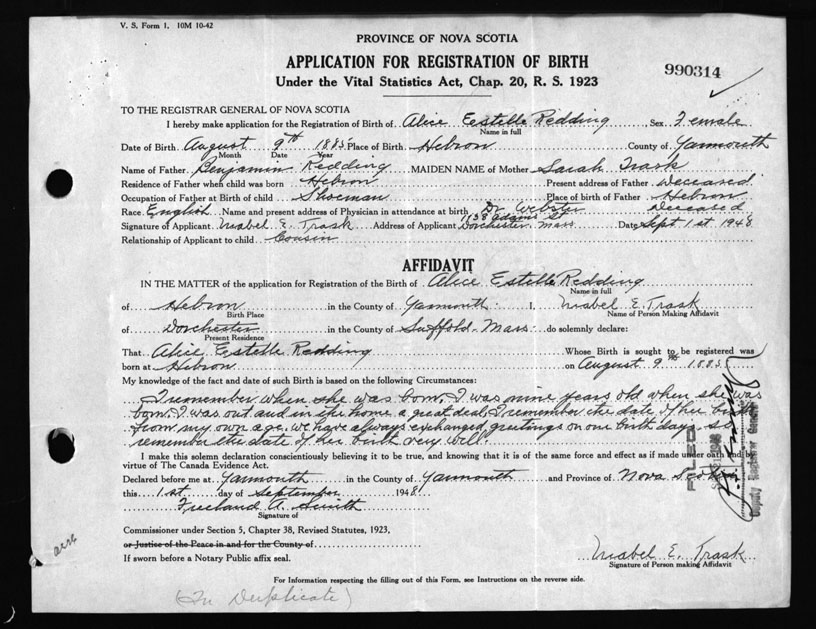 V. S. Form 1. 10M 10-42
PROVINCE OF NOVA SCOTIA
APPLICATION FOR REGISTRATION OF BIRTH
990314
Under the Vital Statistics Act, Chap. 20, R. S. 1923
TO THE REGISTRAR GENERAL OF NOVA SCOTIA
I hereby make application for the Registration of Birth of Alice Eestelle Redding Sex Female
Name in full
Date of Birth August 9th 1885 Place of Birth Hebron County of Yarmouth
Month Date Year
Name of Father Benjamin Redding MAIDEN NAME of Mother Sarah Trask
Residence of Father when child was born Hebron Present address of Father Deceased
Occupation of Father at Birth of child Shoeman Place of birth of Father Hebron
Race English Name and present address of Physician in attendance at birth Dr Webster Deceased
Signature of Applicant Mabel E. Trask Address of Applicant 1138 Adams St Dorchester, Mass Date Sept 1st 1948
Relationship of Applicant to child Cousin
AFFIDAVIT
IN THE MATTER of the application for Registration of the Birth of Alice Estelle Redding
Name in full
of Hebron in the County of Yarmouth. I, Mabel E. Trask
Birth Place Name of Person Making Affidavit
of Dorchester in the County of Suffold-Mass. do solemnly declare:
Present Residence
That Alice Estelle Redding Whose Birth is sought to be registered was
born at Hebron on August 9th 1885
My knowledge of the fact and date of such Birth is based on the following Circumstances:
I remember when she was born. I was nine years old when she was
born. I was out and in the home a great deal. I remember the date of her birth
from my own age. we have always exchanged greetings on our birth days so
remember the date of her birth very well.
I make this solemn declaration conscientiously believing it to be true, and knowing that it is of the same force and effect as if made under oath and by
virtue of The Canada Evidence Act.
Declared before me at Yarmouth in the County of Yarmouth and Province of Nova Scotia
this 1st day of September 1948
Freeland A. Smith
Signature of
Commissioner under Section 5, Chapter 38, Revised Statutes, 1923,
or Justice of the Peace in and for the County of
If sworn before a Notary Public affix seal.
Mabel E. Trask
Signature of Person making Affidavit
FILED
Deputy Registrar General
For Information respecting the filling out of this Form, see Instructions on the reverse side.
(In Duplicate)